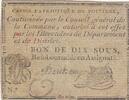 CAISSE PATRIOTIQUE DE
Cautionnée par le Conseil général de
la Commune, autorisée à cet effet
par les Directoires de Département
et de District.
BON DE DIX SOUS,
Remboursable en Assignats.